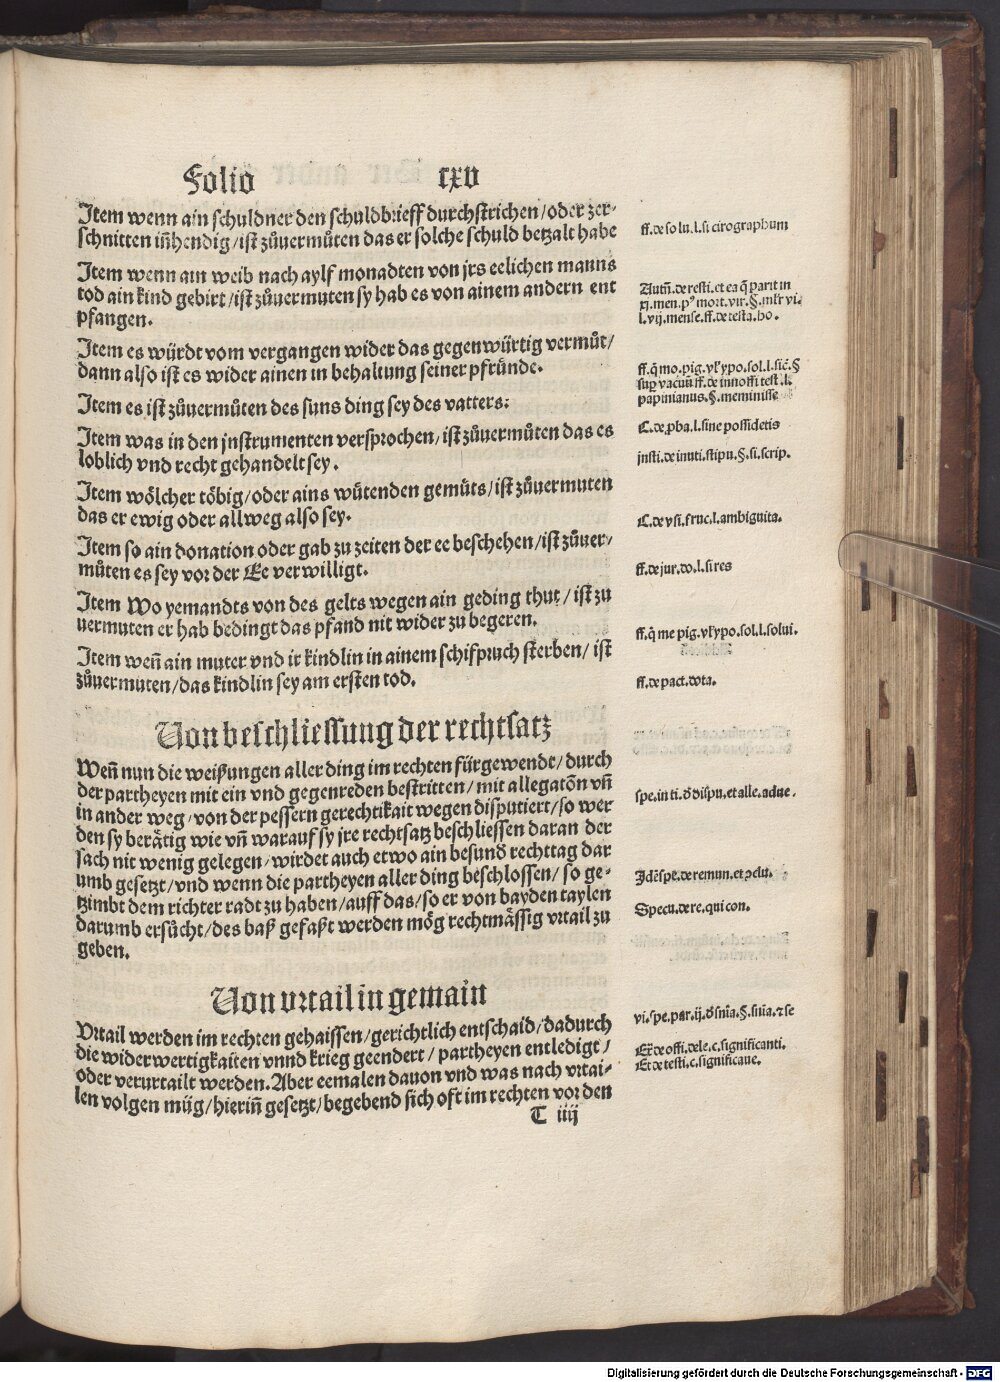 Folio cxv
Item wenn ain schuldner den schuldbrieff durchstrichen/oder zer-
schnitten in̄hendig/ist zůuermůten das er solche schuld betzalt habe
ff. de solu. l. si cirographum
Item wenn ain weib nach aylf monadten von jrs eelichen manns
tod ain kind gebirt/ist zůuermuten sy hab es von ainem andern ent
pfangen.
Autñ. de resti. et ea q̄ parit in
xj. men. pꝰ mort. vir. §. mlr̄ vi-
l. vij. mense. ff. de testa. ho.
Item es würdt vom vergangen wider das gegenwürtig vermůt/
dann also ist es wider ainen in behaltung seiner pfründe.
ff. q̄ mo. pig. vl̓ ypo. sol. l. sic̄. §
sup vacuū ff. de innoffi test. l.
papinianus. §. meminisse
Item es ist zůuermůten des suns ding sey des vatters:
C. de ꝓba. l. sine possidetis
Item was in den jnstrumenten versprochen/ist zůuermůten das es
loblich vnd recht gehandelt sey.
jnsti. de inuti. stipu. §. si. scrip.
Item wölcher töbig/oder ains wütenden gemüts/ist zůuermuten
das er ewig oder allweg also sey.
C. de vsi. fruc. l. ambiguita.
Item so ain donation oder gab zu zeiten der ee beschehen/ist zůuer/
můten es sey vor der Ee verwilligt.
ff. de jur. do. l. si res
Item Wo yemandts von des gelts wegen ain geding thut/ist zu
uermuten er hab bedingt das pfand nit wider zu begeren.
ff. q̄ me pig. vl̓ ypo. sol. l. solui.
Item weñ ain muter vnd ir kindlin in ainem schifpruch sterben/ist
zůuermuten/das kindlin sey am ersten tod.
ff. de pact. dota.
Von beschliessung der rechtsatz
Weñ nun die weißungen aller ding im rechten fürgewendt/durch
der partheyen mit ein vnd gegenreden bestritten/mit allegatōn vñ
in ander weg/von der pessern gerechtikait wegen disputiert/so wer
den sy berätig wie vñ warauf sy jre rechtsatz beschliessen daran der
sach nit wenig gelegen/wirdet auch etwo ain besund rechttag dar
umb gesetzt/vnd wenn die partheyen aller ding beschlossen/so ge-
tzimbt dem richter radt zu haben/auff das/so er von bayden taylen
darumb ersücht/des baß gefaßt werden mög rechtmässig vrtail zu
geben.
spe. in ti. ď dispu. et alle. adue.
Jdē spe. de remun. et ꝯclu.
Specu. de re. qui con.
Von vrtail in gemain
Vrtail werden im rechten gehaissen/gerichtlich entschaid/dadurch
die widerwertigkaiten vnnd krieg geendert/partheyen entledigt/
oder verurtailt werden. Aber eemalen dauon vnd was nach vrtai-
len volgen müg/hieriñ gesetzt/begebend sich oft im rechten vor den
vi. spe. par. ij. ď snīa. §. snīa. ⁊ se
Ex̄ de offi. dele. c. significanti.
Et de testi. c. significaue.
T iiij
Digitalisierung gefördert durch die Deutsche Forschungsgemeinschaft - DFG